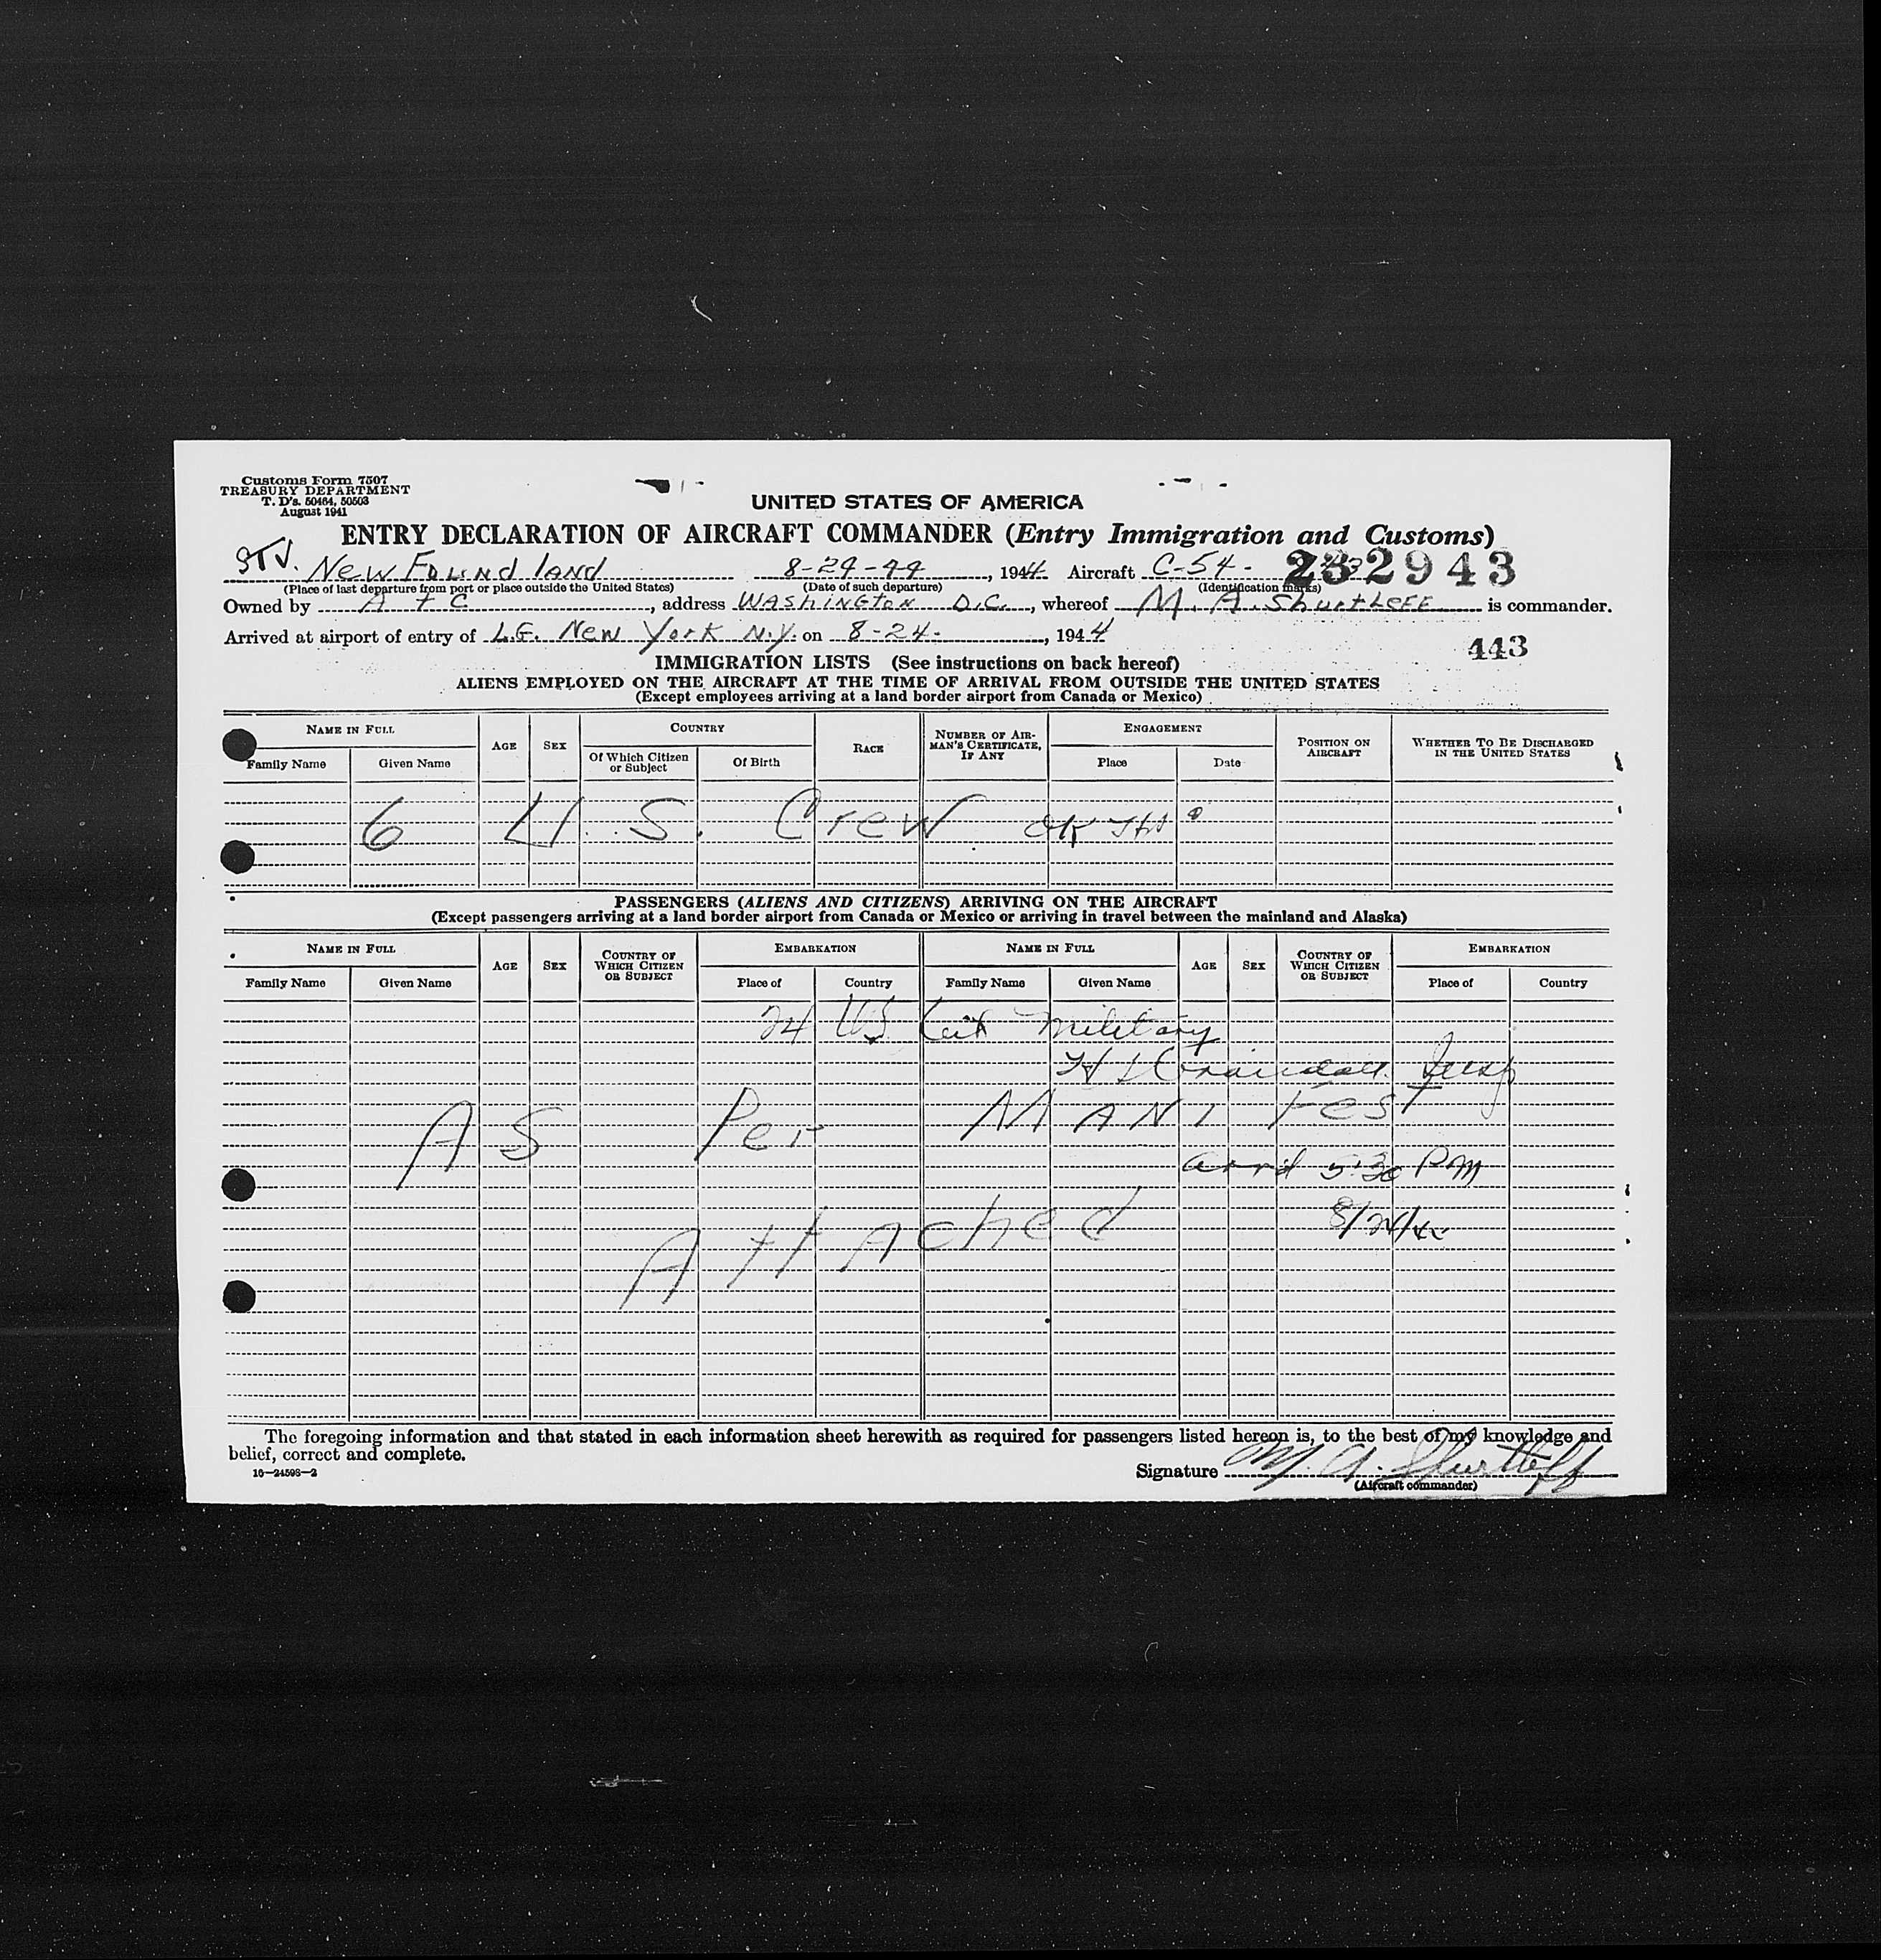 Customs Form 7507
TREASURY DEPARTMENT
T. D's. 50464, 50503
August 1941
UNITED STATES OF AMERICA
ENTRY DECLARATION OF AIRCRAFT COMMANDER (Entry Immigration and Customs)
STV. NEW FOUND LAND 8-24-44, 1944 Aircraft C-54- 232943
(Place of last departure from port or place outside the United States) (Date of such departure) (Identification marks)
Owned by A T C, address WASHINGTON D.C., whereof M. A. ShurtLeFF is commander.
Arrived at airport of entry of L.G. New York N.Y. on 8-24-, 1944
443
IMMIGRATION LISTS (See instructions on back hereof)
ALIENS EMPLOYED ON THE AIRCRAFT AT THE TIME OF ARRIVAL FROM OUTSIDE THE UNITED STATES
(Except employees arriving at a land border airport from Canada or Mexico)
NAME IN FULL AGE SEX COUNTRY RACE NUMBER OF AIRMAN'S CERTIFICATE, IF ANY ENGAGEMENT POSITION ON AIRCRAFT WHETHER TO BE DISCHARGED IN THE UNITED STATES
Family Name Given Name Of Which Citizen or Subject Of Birth Place Date
6 U.S. Crew OK
PASSENGERS (ALIENS AND CITIZENS) ARRIVING ON THE AIRCRAFT
(Except passengers arriving at a land border airport from Canada or Mexico or arriving in travel between the mainland and Alaska)
NAME IN FULL AGE SEX COUNTRY OF WHICH CITIZEN OR SUBJECT EMBARKATION NAME IN FULL AGE SEX COUNTRY OF WHICH CITIZEN OR SUBJECT EMBARKATION
Family Name Given Name Place of Country Family Name Given Name Place of Country
24 US Cit Military
Insp
AS Per MANIFEST
arrd 5:30 PM
Attached 8/24/44
The foregoing information and that stated in each information sheet herewith as required for passengers listed hereon is, to the best of my knowledge and
belief, correct and complete.
16-24598-2
Signature M. A. Shurtleff
(Aircraft commander)